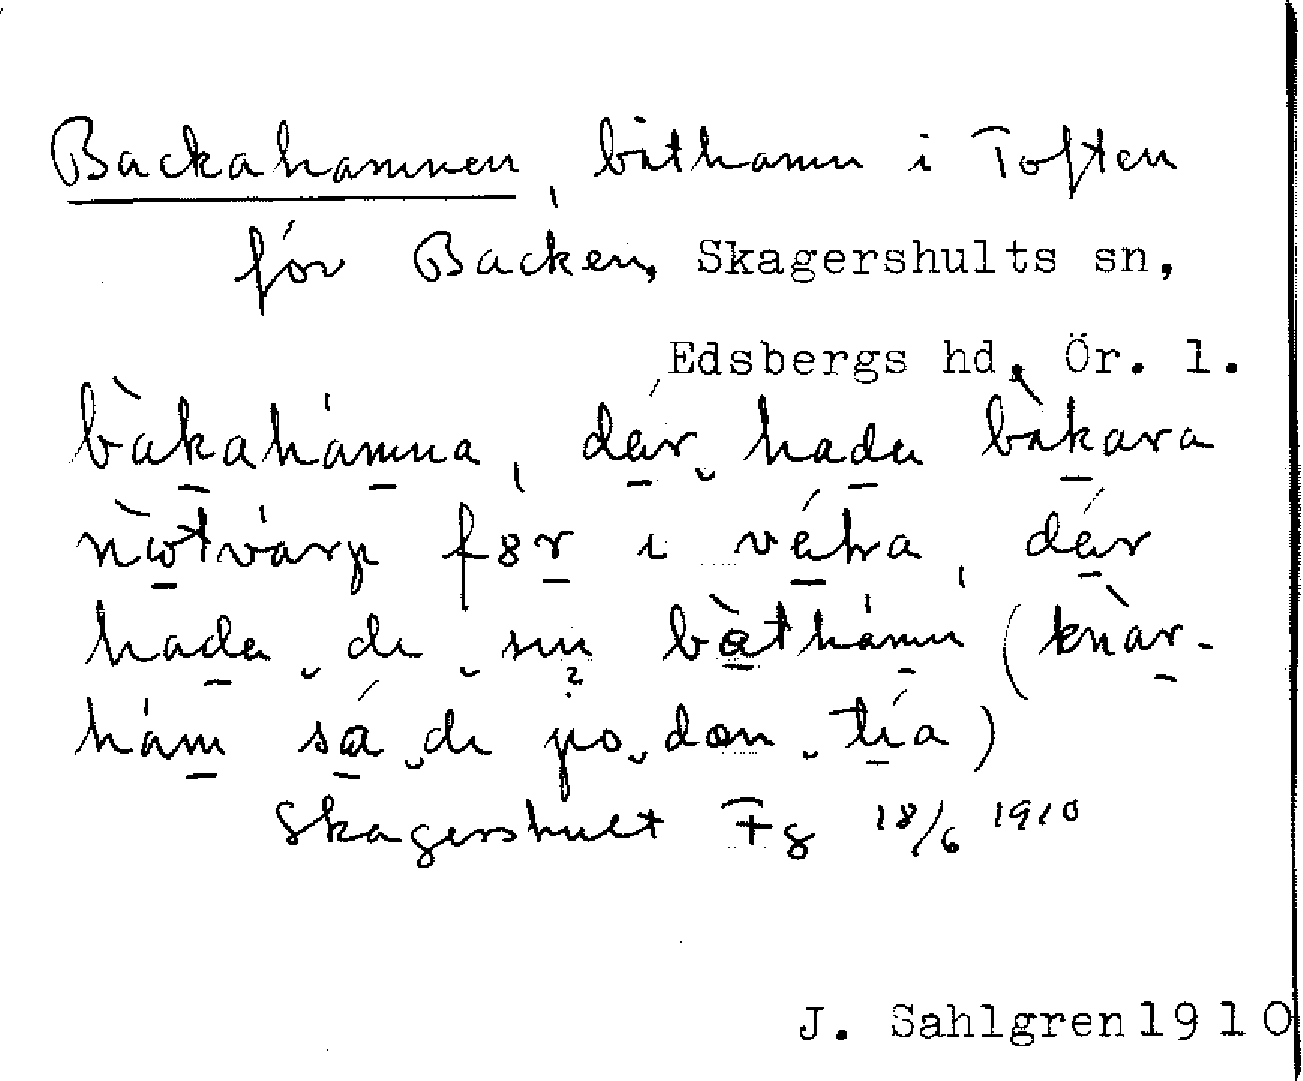 Backahamnen, båthamn i Toften
för Backen, Skagershults sn,
Edsbergs hd, Ör. l.
bàkahámna, dár hada bàkara
nòtvárp før i vátra, dár
hada de sin bàthámn (knàr-
hám sá de po dan tía)
Skagershult Fg 18/6 1910
J. Sahlgren 1910